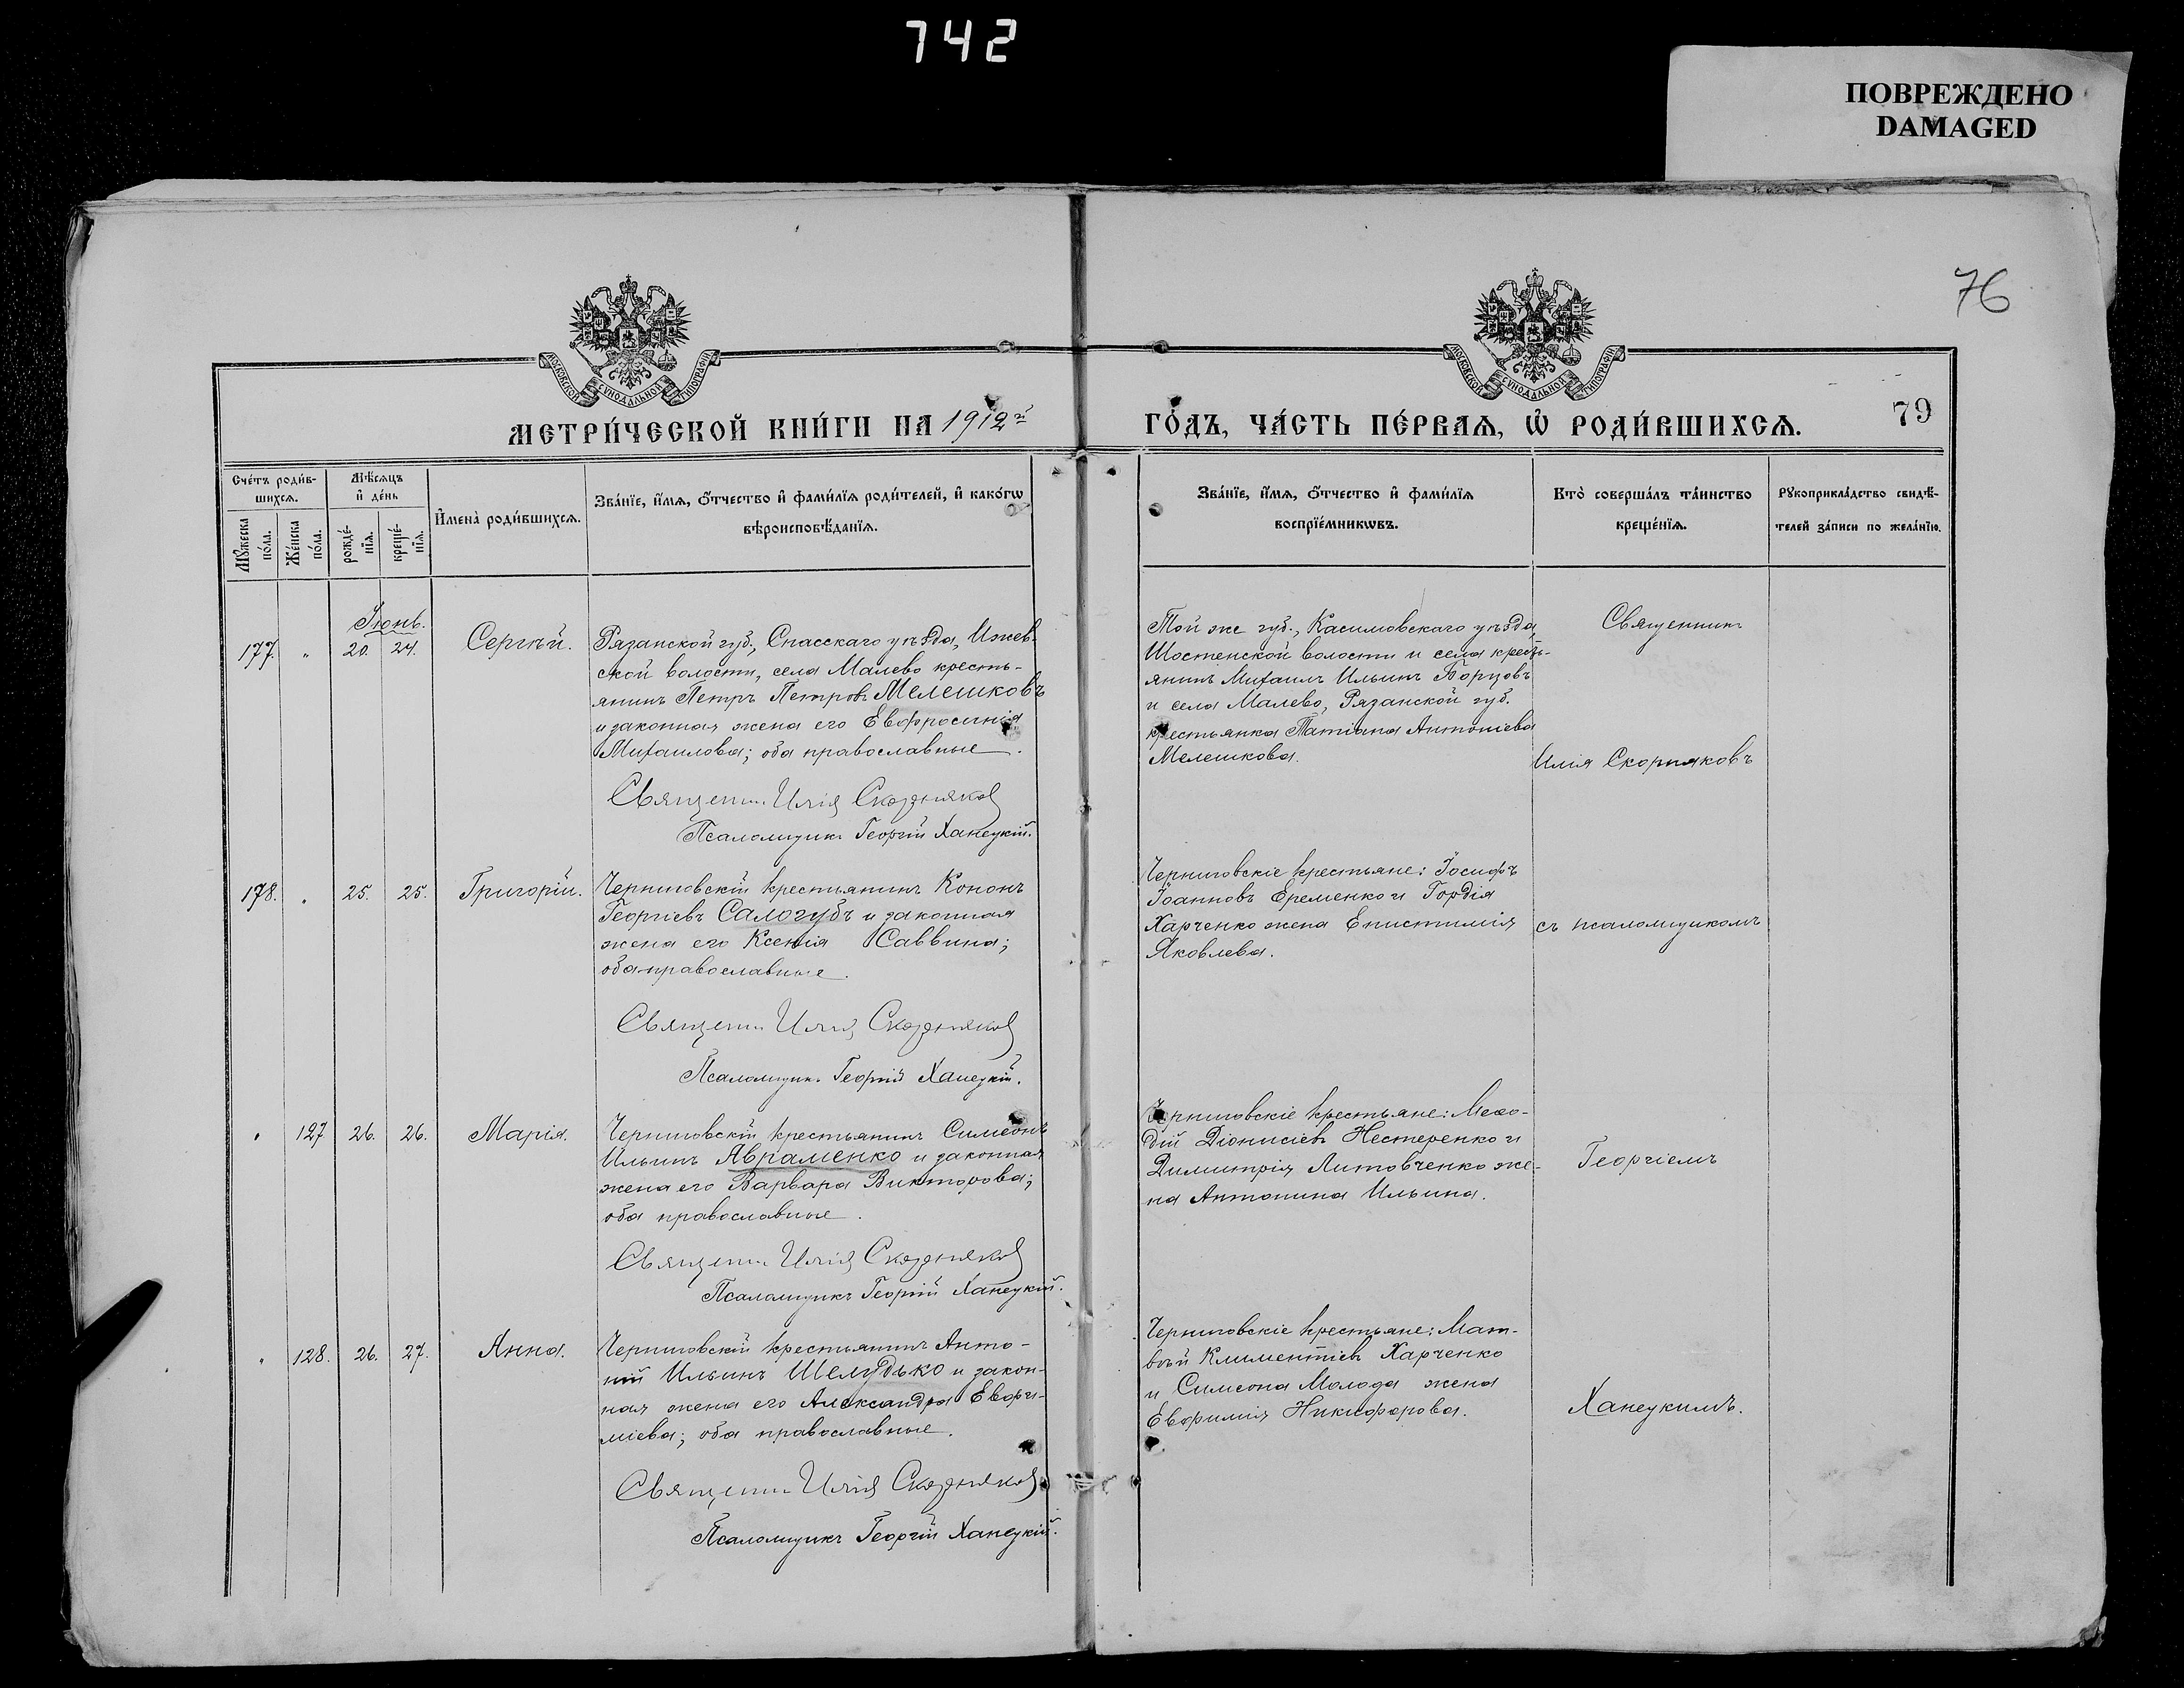 742
ПОВРЕЖДЕНО
DAMAGED
76
МОСКОВСКОЙ СѴНОДАЛЬНОЙ ТИПОГРАФІИ
МОСКОВСКОЙ СѴНОДАЛЬНОЙ ТИПОГРАФІИ
МЕТРИ́ЧЕСКОЙ КНИ́ГИ НА 1912й
ГО́ДЪ, ЧА́СТЬ ПЕ́РВАѦ, Ѡ҆ РОДИ́ВШИХСѦ.
79
Сче́тъ роди́в-
шихсѧ.
Мѣ́сѧцъ
и҆ де́нь
Мꙋ́жеска
по́ла.
Же́нска
по́ла.
рожде́-
нїѧ.
креще́-
нїѧ.
И҆мена̀ роди́вшихсѧ.
Зва́нїе, и҆́мѧ, ѻ҆́тчество и҆ фами́лїѧ роди́телей, и҆ како́гѡ
вѣроисповѣ́данїѧ.
Зва́нїе, и҆́мѧ, ѻ҆́тчество и҆ фами́лїѧ
воспрїе́мникѡвъ.
Кто̀ соверша́лъ та́инство
креще́нїѧ.
Рꙋкоприкла́дство свидѣ́-
телей за́писи по жела́нїю.
Іюнь.
177. " 20. 24. Сергѣй.
Рязанской губ., Спасскаго уѣзда, Ижев-
ской волости, села Малево кресть-
янинъ Петръ Петровъ Мелешковъ
и законная жена его Евфросинія
Михаилова; оба православные.
Священн. Илія Скорняков
Псаломщикъ Георгій Ханецкій.
Той же губ., Касимовскаго уѣзда,
Шостенской волости и села кресть-
янинъ Михаилъ Ильинъ Борцовъ
и села Малево, Рязанской губ.
крестьянка Татіана Антоніева
Мелешкова.
Священникъ
Илія Скорняковъ
178. " 25. 25. Григорій.
Черниговскій крестьянинъ Кононъ
Георгіевъ Салогубъ и законная
жена его Ксенія Саввина;
оба православные.
Священн Илія Скорняков
Псаломщик. Георгій Ханецкій.
Черниговскіе крестьяне: Іосифъ
Іоанновъ Еременко и Гордія
Харченко жена Епистимія
Яковлева.
съ псаломщикомъ
" 127 26. 26. Марія.
Черниговскій крестьянинъ Симеонъ
Ильинъ Авраменко и законная
жена его Варвара Викторова;
оба православные.
Священн. Илія Скорняков
Псаломщикъ Георгій Ханецкій.
Черниговскіе крестьяне: Меѳо-
дій Діонисіевъ Нестеренко и
Димитрія Литовченко же-
на Антонина Ильина.
Георгіемъ
" 128. 26. 27. Анна.
Черниговскій крестьянинъ Анто-
ній Ильинъ Шелудько и закон-
ная жена его Александра Евфи-
міева; оба православные.
Священн Илія Скорняков
Псаломщикъ Георгій Ханецкій.
Черниговскіе крестьяне: Мат-
вѣй Климентіевъ Харченко
и Симеона Молода жена
Евфимія Никифорова.
Ханецкимъ.